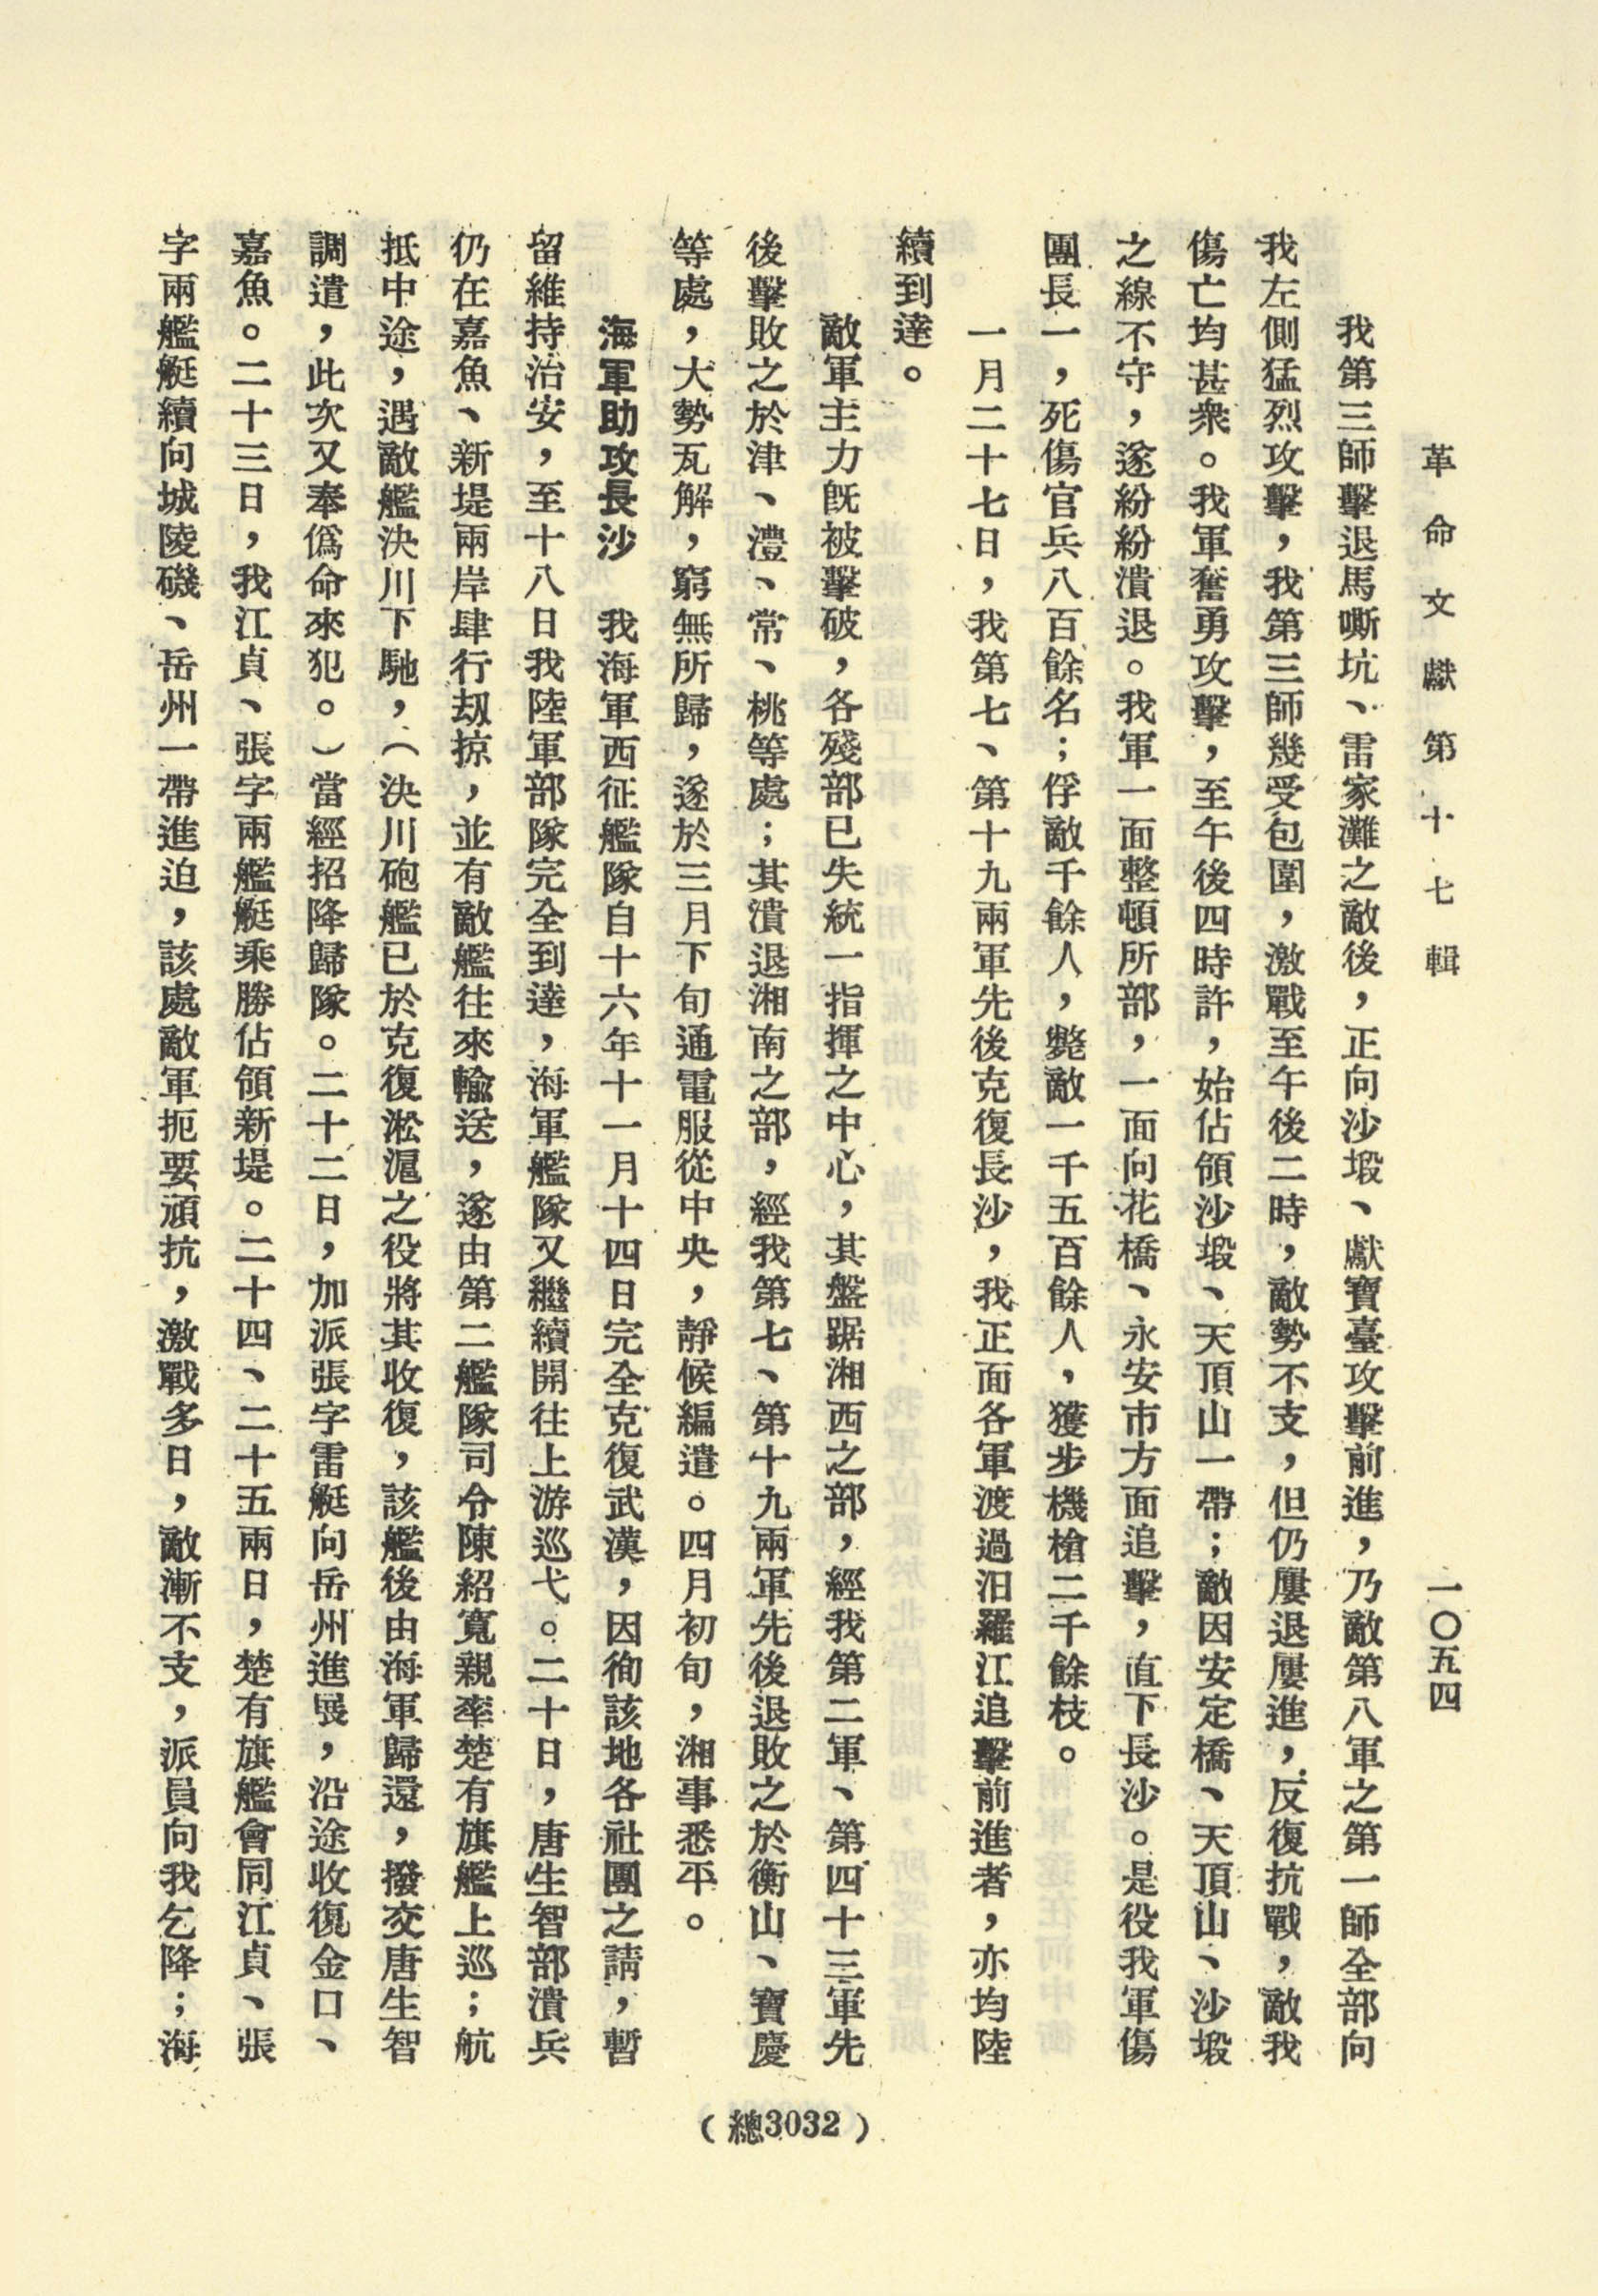 革命文獻第十七輯
一〇五四
我第三師擊退馬嘶坑、雷家灘之敵後，正向沙塅、獻寶臺攻擊前進，乃敵第八軍之第一師全部向
我左側猛烈攻擊，我第三師幾受包圍，激戰至午後二時，敵勢不支，但仍屢退屢進，反復抗戰，敵我
傷亡均甚衆。我軍奮勇攻擊，至午後四時許，始佔領沙塅、天頂山一帶；敵因安定橋、天頂山、沙塅
之線不守，遂紛紛潰退。我軍一面整頓所部，一面向花橋、永安市方面追擊，直下長沙。是役我軍傷
團長一，死傷官兵八百餘名；俘敵千餘人，斃敵一千五百餘人，獲步機槍二千餘枝。
一月二十七日，我第七、第十九兩軍先後克復長沙，我正面各軍渡過汨羅江追擊前進者，亦均陸
續到達。
敵軍主力旣被擊破，各殘部已失統一指揮之中心，其盤踞湘西之部，經我第二軍、第四十三軍先
後擊敗之於津、澧、常、桃等處；其潰退湘南之部，經我第七、第十九兩軍先後退敗之於衡山、寶慶
等處，大勢瓦解，窮無所歸，遂於三月下旬通電服從中央，靜候編遣。四月初旬，湘事悉平。
海軍助攻長沙　我海軍西征艦隊自十六年十一月十四日完全克復武漢，因徇該地各社團之請，暫
留維持治安，至十八日我陸軍部隊完全到達，海軍艦隊又繼續開往上游巡弋。二十日，唐生智部潰兵
仍在嘉魚、新堤兩岸肆行刼掠，並有敵艦往來輸送，遂由第二艦隊司令陳紹寬親率楚有旗艦上巡；航
抵中途，遇敵艦決川下馳，（決川砲艦已於克復淞滬之役將其收復，該艦後由海軍歸還，撥交唐生智
調遣，此次又奉僞命來犯。）當經招降歸隊。二十二日，加派張字雷艇向岳州進展，沿途收復金口、
嘉魚。二十三日，我江貞、張字兩艦艇乘勝佔領新堤。二十四、二十五兩日，楚有旗艦會同江貞、張
字兩艦艇續向城陵磯、岳州一帶進迫，該處敵軍扼要頑抗，激戰多日，敵漸不支，派員向我乞降；海
（總3032）